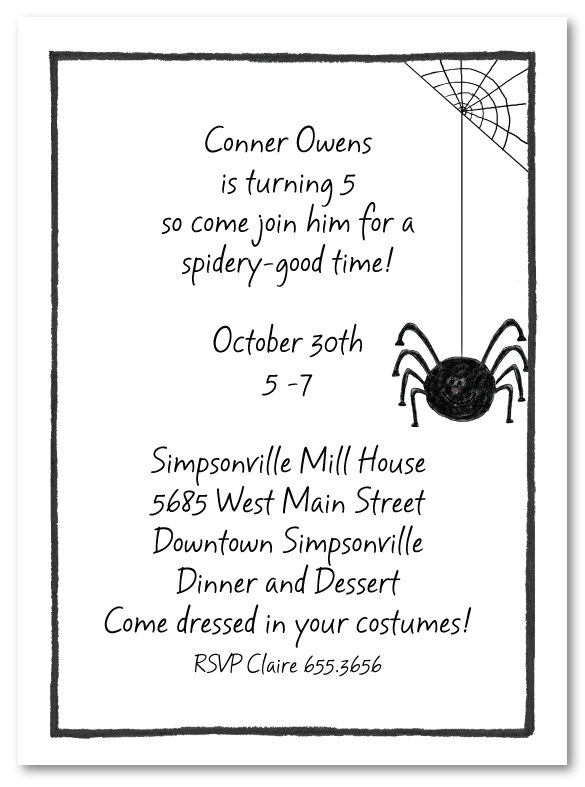 Conner Owens
is turning 5
so come join him for a
spidery-good time!
October 30th
5 -7
Simpsonville Mill House
5685 West Main Street
Downtown Simpsonville
Dinner and Dessert
Come dressed in your costumes!
RSVP Claire 655.3656